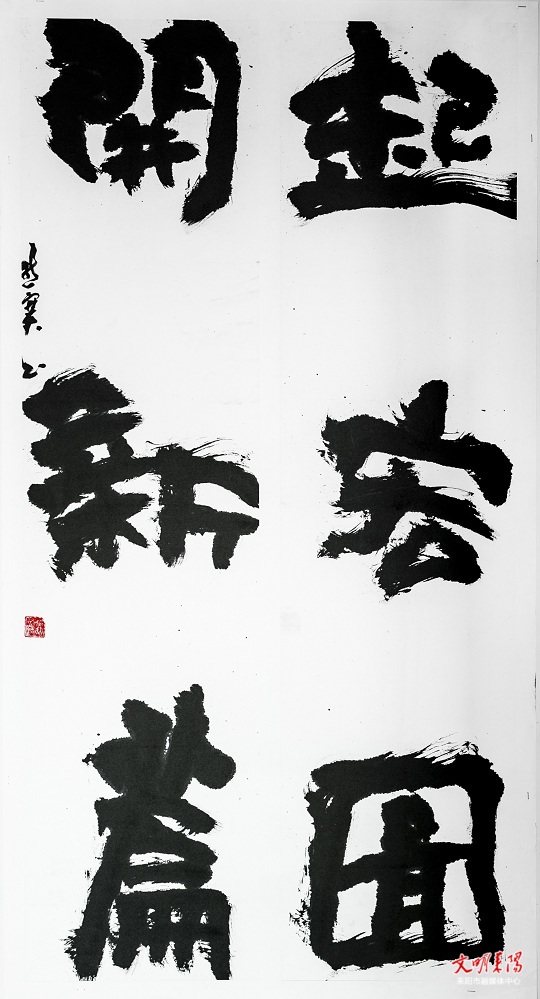 起宏圖
開新篇
文明耒陽
耒阳市融媒体中心